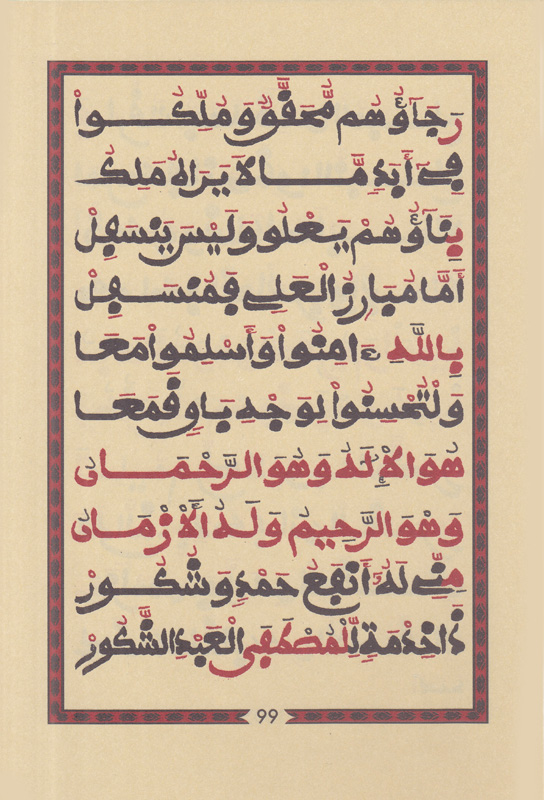 رَجَآؤُهُم مُّحَقَّقٌ وَمُلِّكُواْ
فِي أَبَدٍ مَّا لَا يَرَاهُ مَلِكُ
بِنَآؤُهُمْ يَعْلُو وَلَيْسَ يَنْسَفِلْ
أَمَّا مُبَارِزُ الْعَلِي فَمُنْسَفِلْ
بِاللَّهِ ءَامِنُواْ وَأَسْلِمُواْ مَعَا
وَلْتُحْسِنُواْ لِوَجْهِ بَاقٍ قَمَعَا
هُوَ الْإِلَهُ وَهُوَ الرَّحْمَانُ
وَهُوَ الرَّحِيمُ وَلَهُ الْأَزْمَانُ
مِنِّي لَهُ أَنْفَعُ حَمْدٍ وَشُكُورْ
ذَا خِدْمَةٍ لِّلْمُصْطَفَى الْعَبْدِ الشَّكُورْ
99